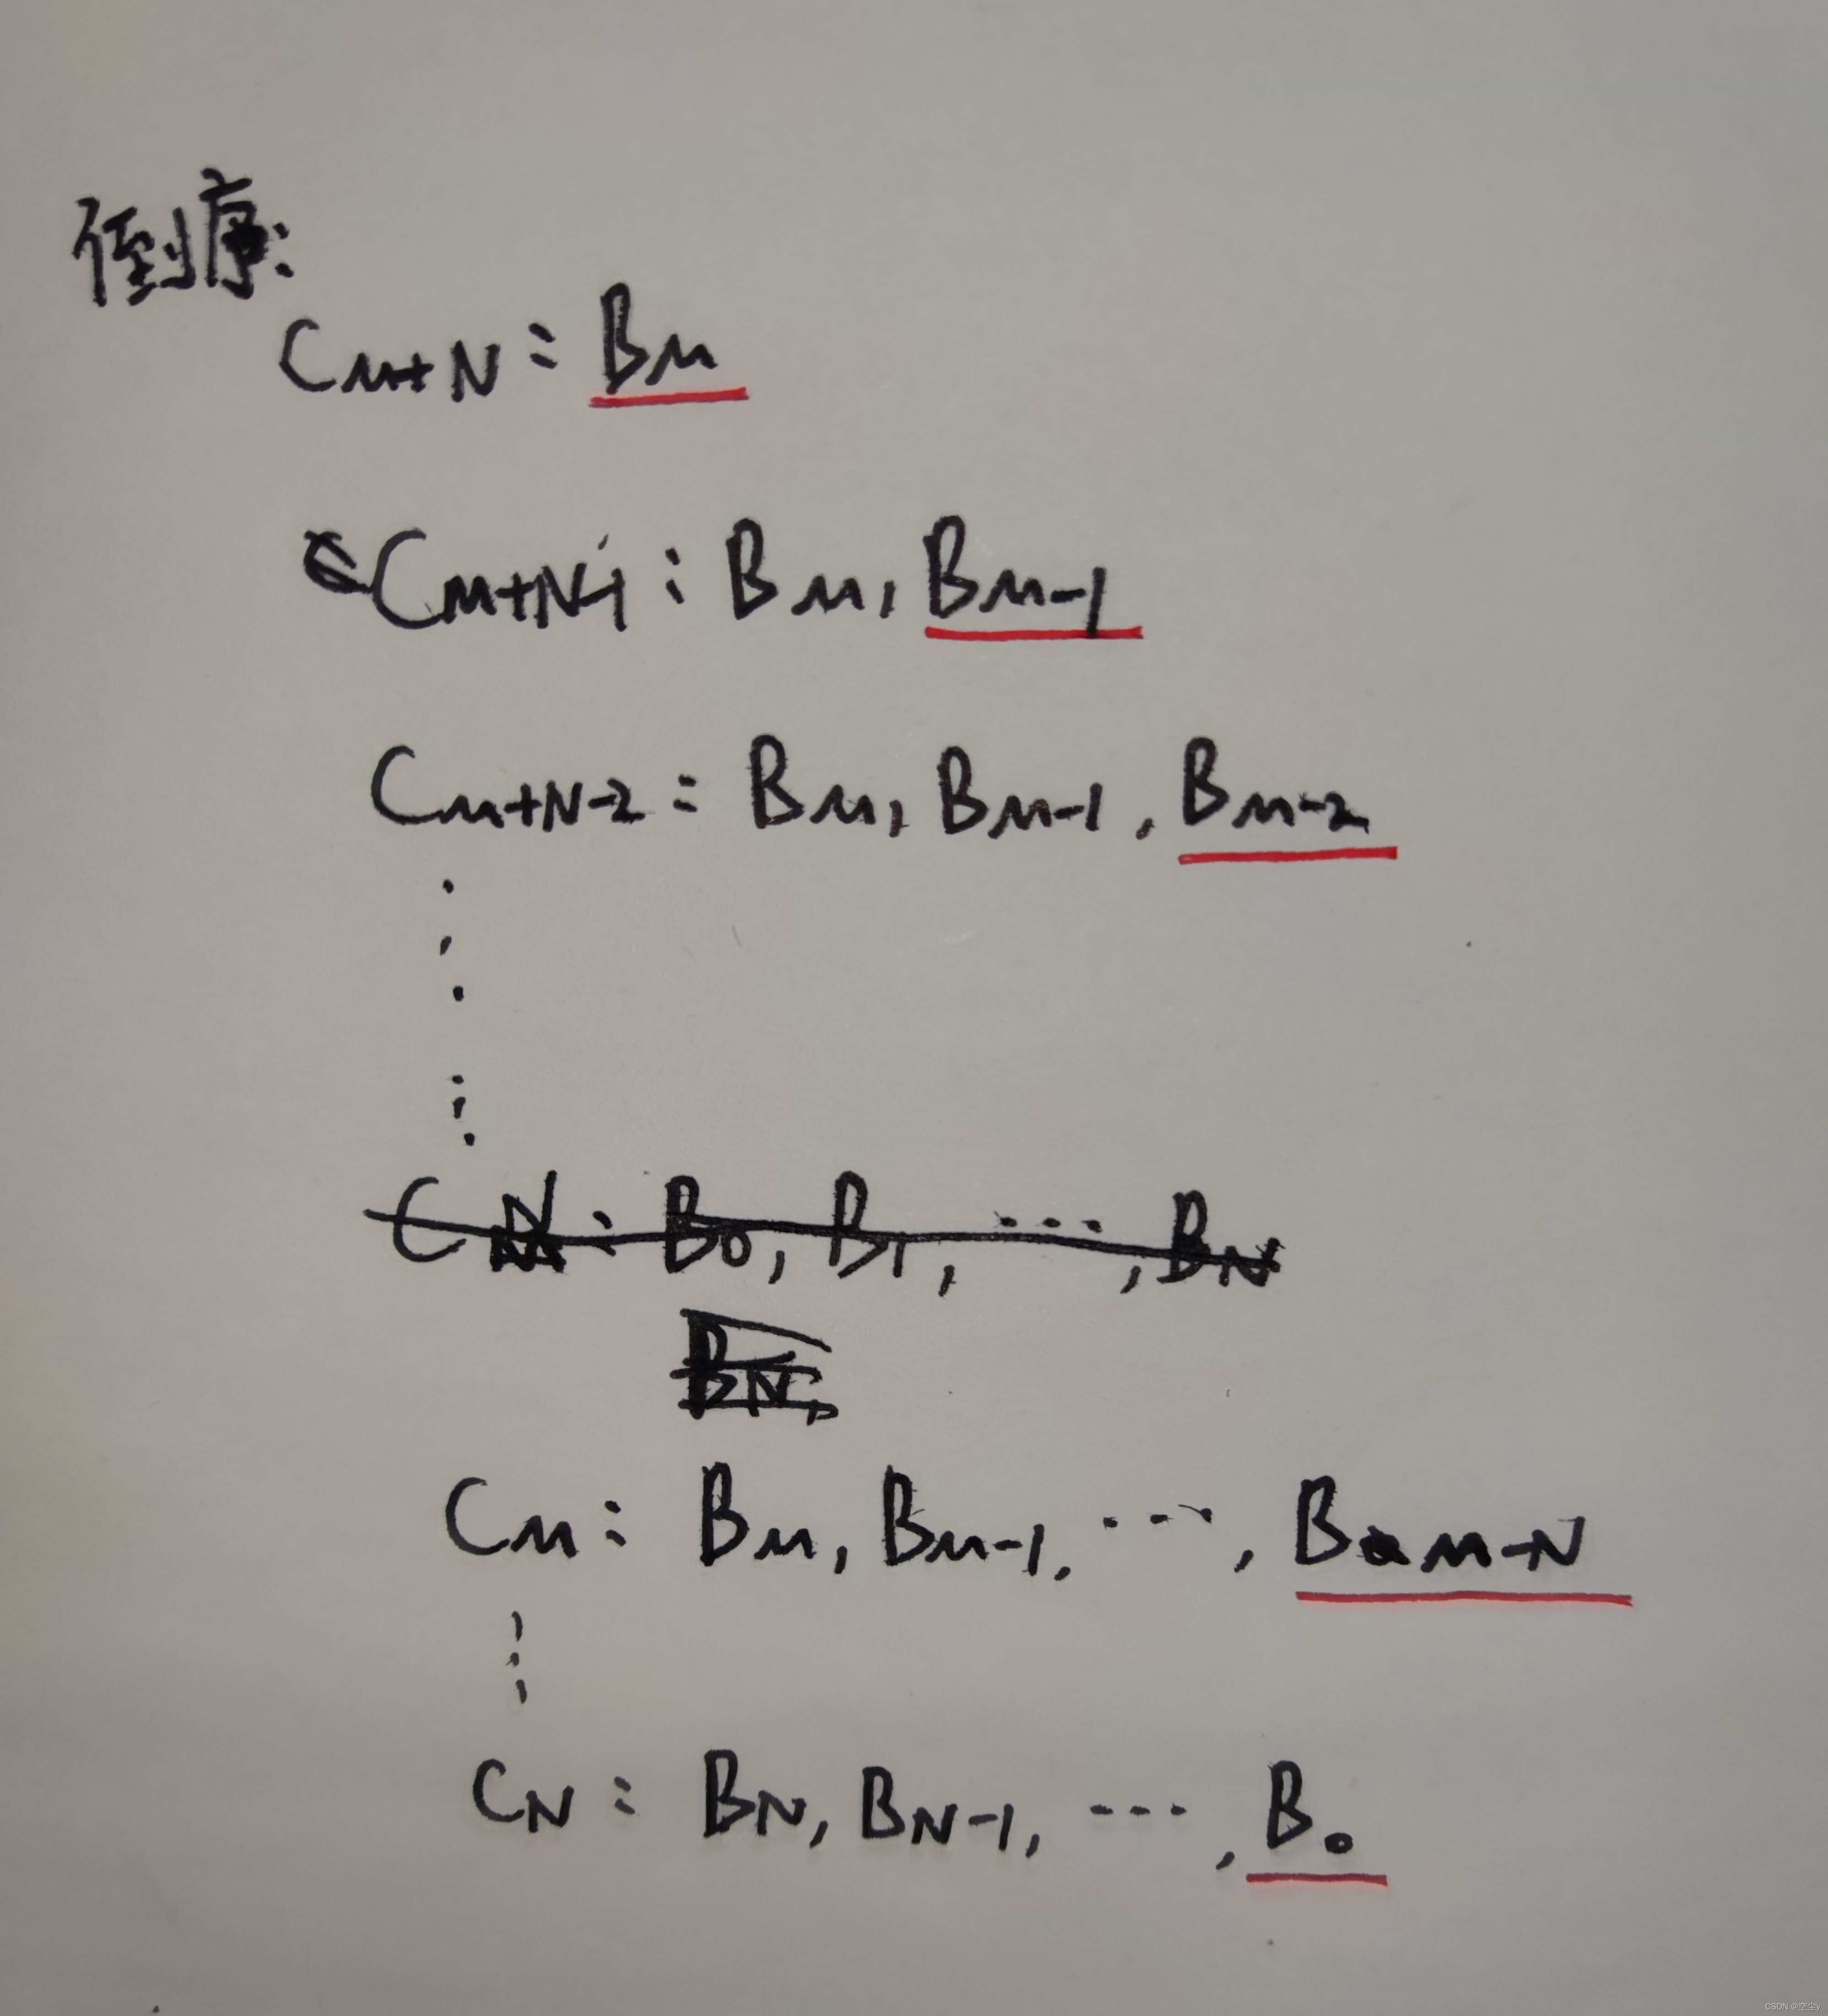 倒序:
CM+N: BM
CM+N-1: BM, BM-1
CM+N-2: BM, BM-1, BM-2
CN: B0, B1, ..., BN
BN,
CM: BM, BM-1, ..., BM-N
CN: BN, BN-1, ..., B0
CSDN @空尘y